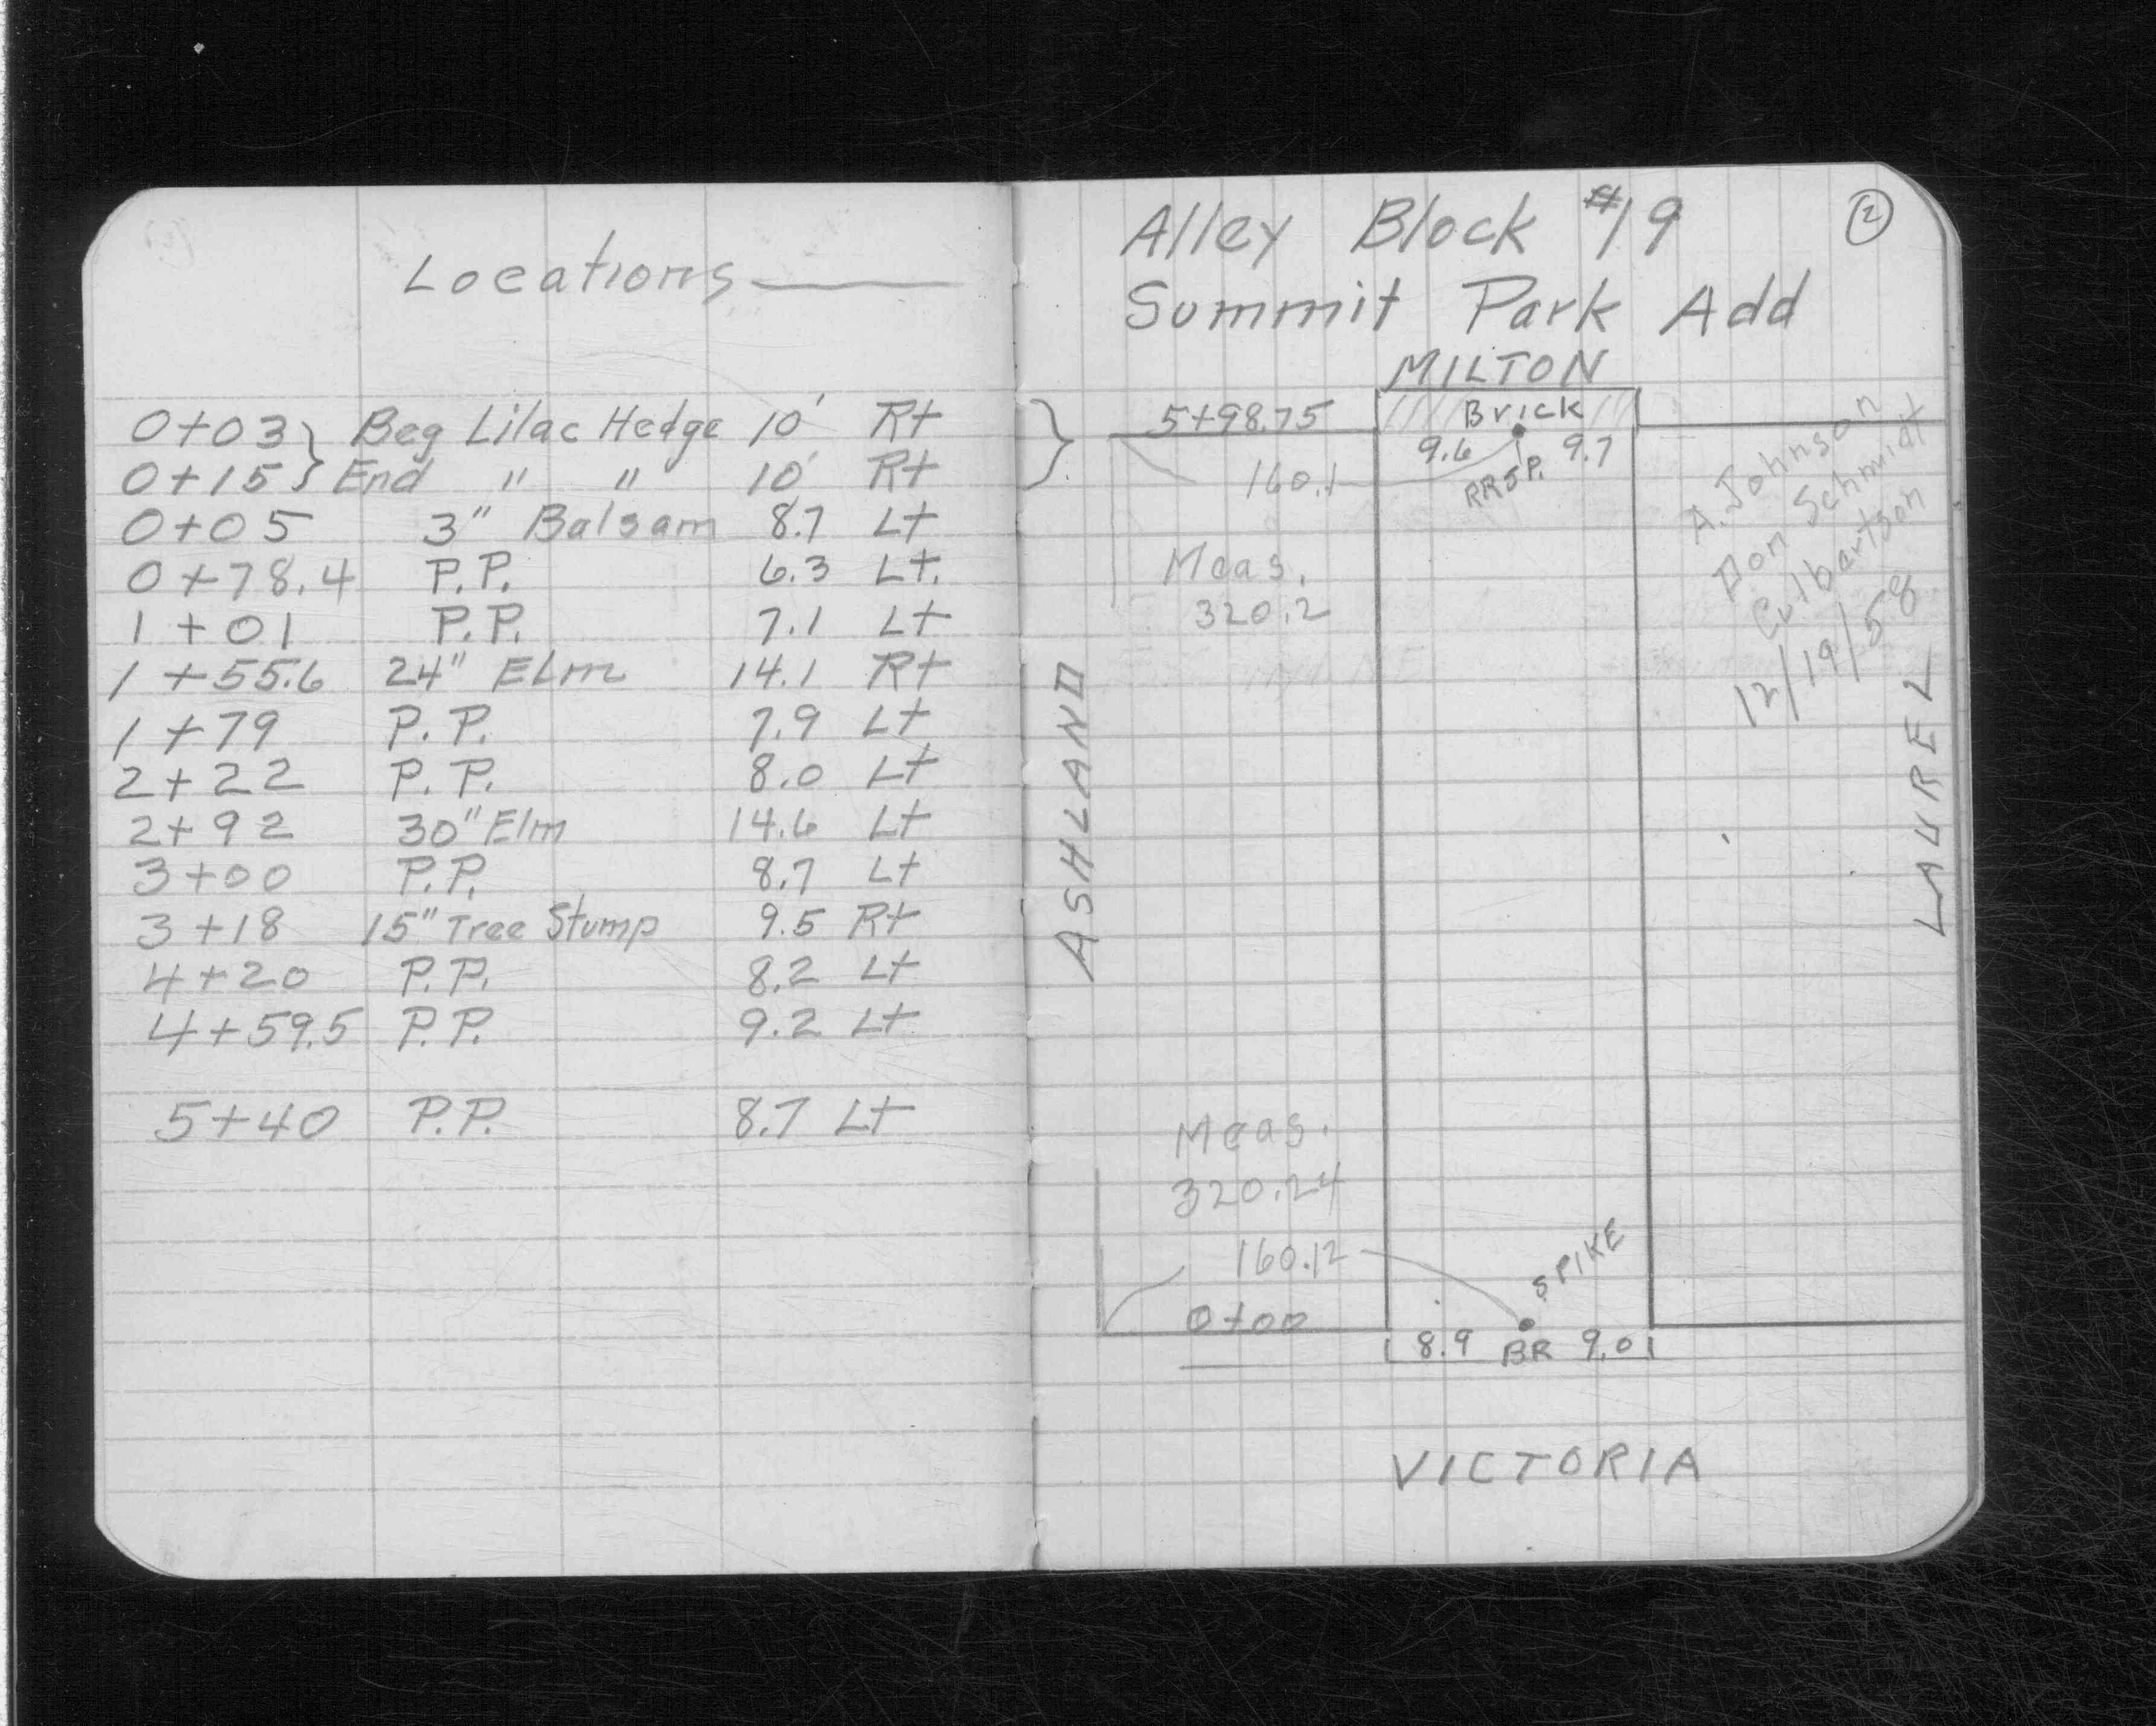 Locations
0+03 } Beg Lilac Hedge 10' Rt
0+15 } End " " 10' Rt
0+05 3" Balsam 8.7 Lt
0+78.4 P.P. 6.3 Lt.
1+01 P.P. 7.1 Lt
1+55.6 24" Elm 14.1 Rt
1+79 P.P. 7.9 Lt
2+22 P.P. 8.0 Lt
2+92 30" Elm 14.6 Lt
3+00 P.P. 8.7 Lt
3+18 15" Tree Stump 9.5 Rt
4+20 P.P. 8.2 Lt
4+59.5 P.P. 9.2 Lt
5+40 P.P. 8.7 Lt
Alley Block #19
2
Summit Park Add
MILTON
5+98.75 Brick
9.6 9.7
160.1 RRSP.
A. Johnson
Don Schmidt
Culbertson
12/19/58
Meas.
320.2
ASHLAND
LAUREL
Meas.
320.24
160.12
SPIKE
0+00
8.9 BR 9.0
VICTORIA